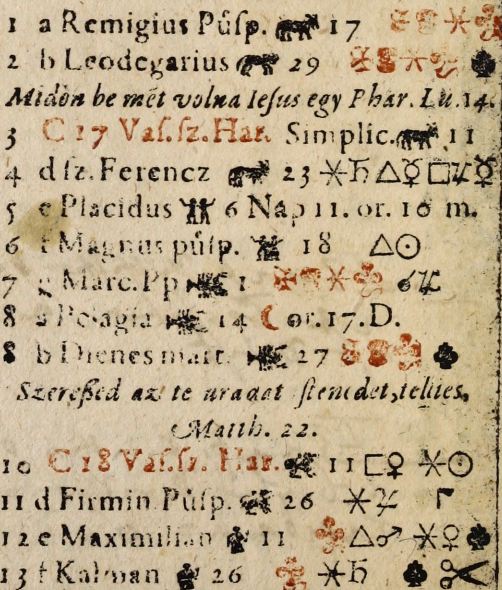 1 a Remigius Pűſp. 17
2 b Leodegarius 29
Midőn be mēt volna Ieſus egy Phar. Lu. 14.
3 C 17 Vaſ. ſz. Har. Simplic. 11
4 d ſz. Ferencz 23 ⚹ ♄ △ ☿ □ ♃ ☿
5 e Placidus 6 Nap 11. or. 16 m.
6 f Magnus pűſp. 18 △ ☉
7 g Marc. Pp 1 ♃
8 a Pelagia 14 ☾ or. 17. D.
8 b Dienes mart. 27
Szereßed az te uradat Iſtenedet, telljes,
Matth. 22.
10 C 18 Vaſ. ſz. Har. 11 □ ♀ ⚹ ☉
11 d Firmin. Pűſp. 26 ⚹ ♃
12 e Maximilian 11 △ ♂ ⚹ ♀
13 f Kalman 26 ⚹ ♄